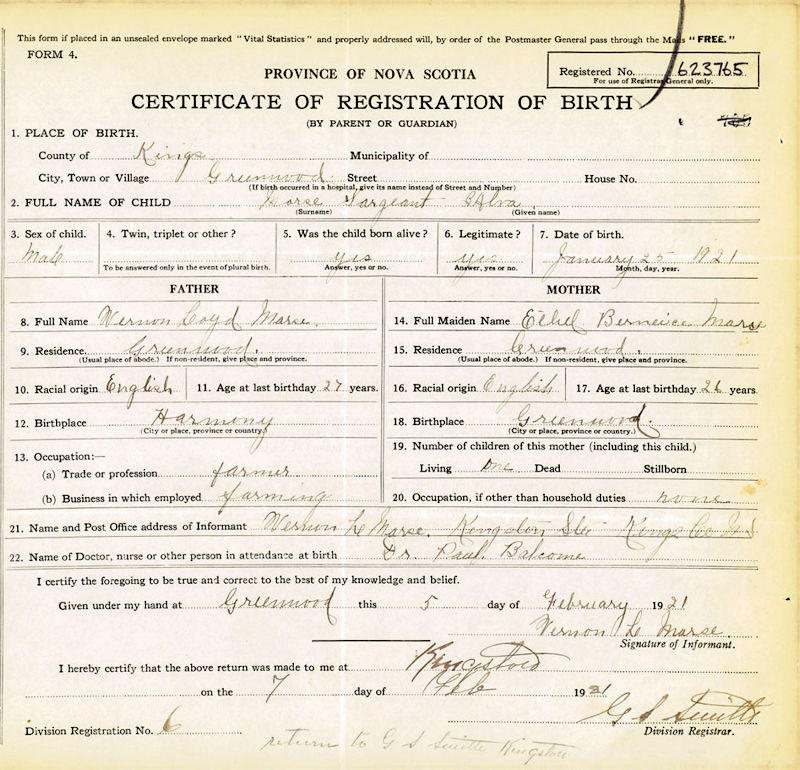 This form if placed in an unsealed envelope marked "Vital Statistics" and properly addressed will, by order of the Postmaster General pass through the Mails "FREE."
FORM 4.
PROVINCE OF NOVA SCOTIA
Registered No. 623765
For use of Registrar General only.
CERTIFICATE OF REGISTRATION OF BIRTH
(BY PARENT OR GUARDIAN)
1. PLACE OF BIRTH.
County of Kings Municipality of
City, Town or Village Greenwood Street House No.
(If birth occurred in a hospital, give its name instead of Street and Number)
2. FULL NAME OF CHILD Sargeant
(Surname) (Given name)
3. Sex of child. 4. Twin, triplet or other? 5. Was the child born alive? 6. Legitimate? 7. Date of birth.
Male yis yis January 25 1921
To be answered only in the event of plural birth. Answer, yes or no. Answer, yes or no. Month, day, year.
FATHER MOTHER
8. Full Name Vernon Loyd Marse. 14. Full Maiden Name Ethel Berneice Marse
9. Residence Greenwood. 15. Residence Greenwood.
(Usual place of abode.) If non-resident, give place and province. (Usual place of abode.) If non-resident, give place and province.
10. Racial origin English 11. Age at last birthday 27 years. 16. Racial origin English 17. Age at last birthday 26 years.
12. Birthplace Harmony 18. Birthplace Greenwood.
(City or place, province or country.) (City or place, province or country.)
13. Occupation:— 19. Number of children of this mother (including this child.)
(a) Trade or profession farmer Living one Dead Stillborn
(b) Business in which employed farming 20. Occupation, if other than household duties none
21. Name and Post Office address of Informant Vernon L Marse. Kingston Kings Co N S
22. Name of Doctor, nurse or other person in attendance at birth Dr. Paul Balcome
I certify the foregoing to be true and correct to the best of my knowledge and belief.
Given under my hand at Greenwood this 5 day of February 1921
Vernon L Marse.
Signature of Informant.
I hereby certify that the above return was made to me at
on the 7 day of Feb 1921
G S Smith
Division Registration No. 6 Division Registrar.
return to G S Smith Kingston